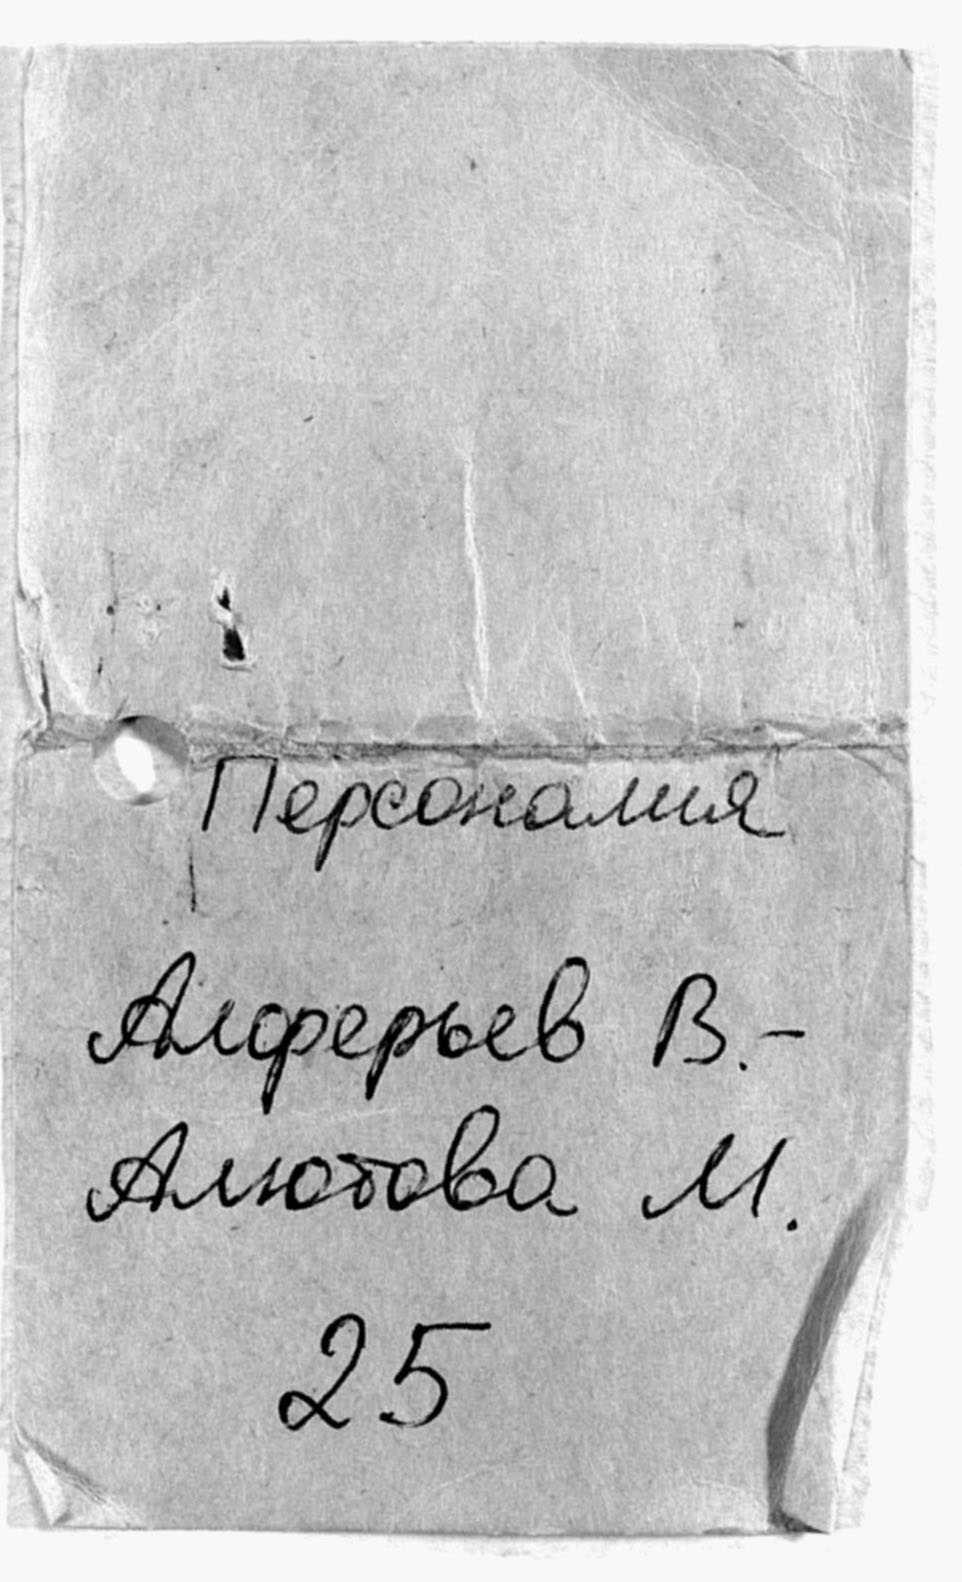 Персоналия
Алферьев В.-
Алютова М.
25